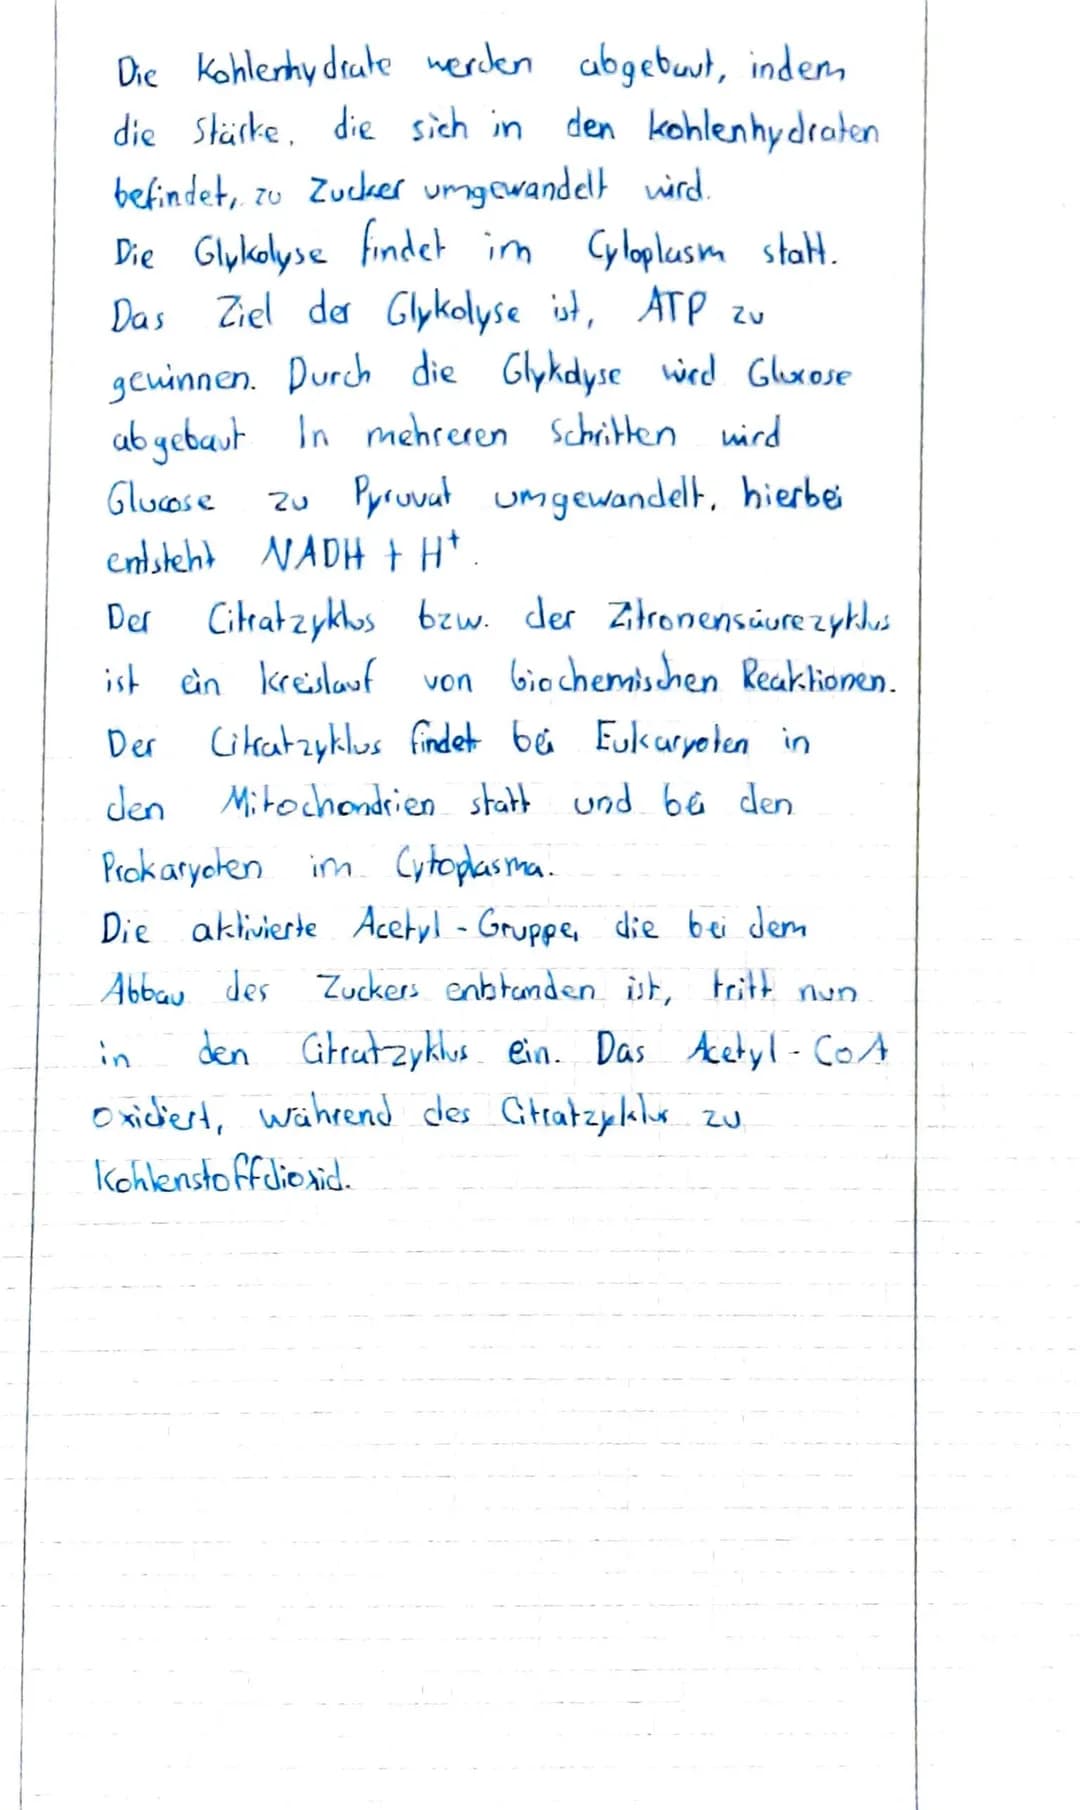 Die Kohlenhydrate werden abgebaut, indem
die Stärke, die sich in den kohlenhydraten
befindet, zu Zucker umgewandelt wird.
Die Glykolyse findet im Cytoplasm statt.
Das Ziel der Glykolyse ist, ATP zu
gewinnen. Durch die Glykolyse wird Glucose
abgebaut In mehreren Schritten wird
Glucose zu Pyruvat umgewandelt, hierbei
entsteht NADH + H⁺.
Der Citratzyklus bzw. der Zitronensäurezyklus
ist ein kreislauf von biochemischen Reaktionen.
Der Citratzyklus findet bei Eukaryoten in
den Mitochondrien statt und bei den
Prokaryoten im Cytoplasma.
Die aktivierte Acetyl-Gruppe, die bei dem
Abbau des Zuckers entstanden ist, tritt nun
in den Citratzyklus ein. Das Acetyl-CoA
oxidiert, während des Citratzyklus zu
Kohlenstoffdioxid.